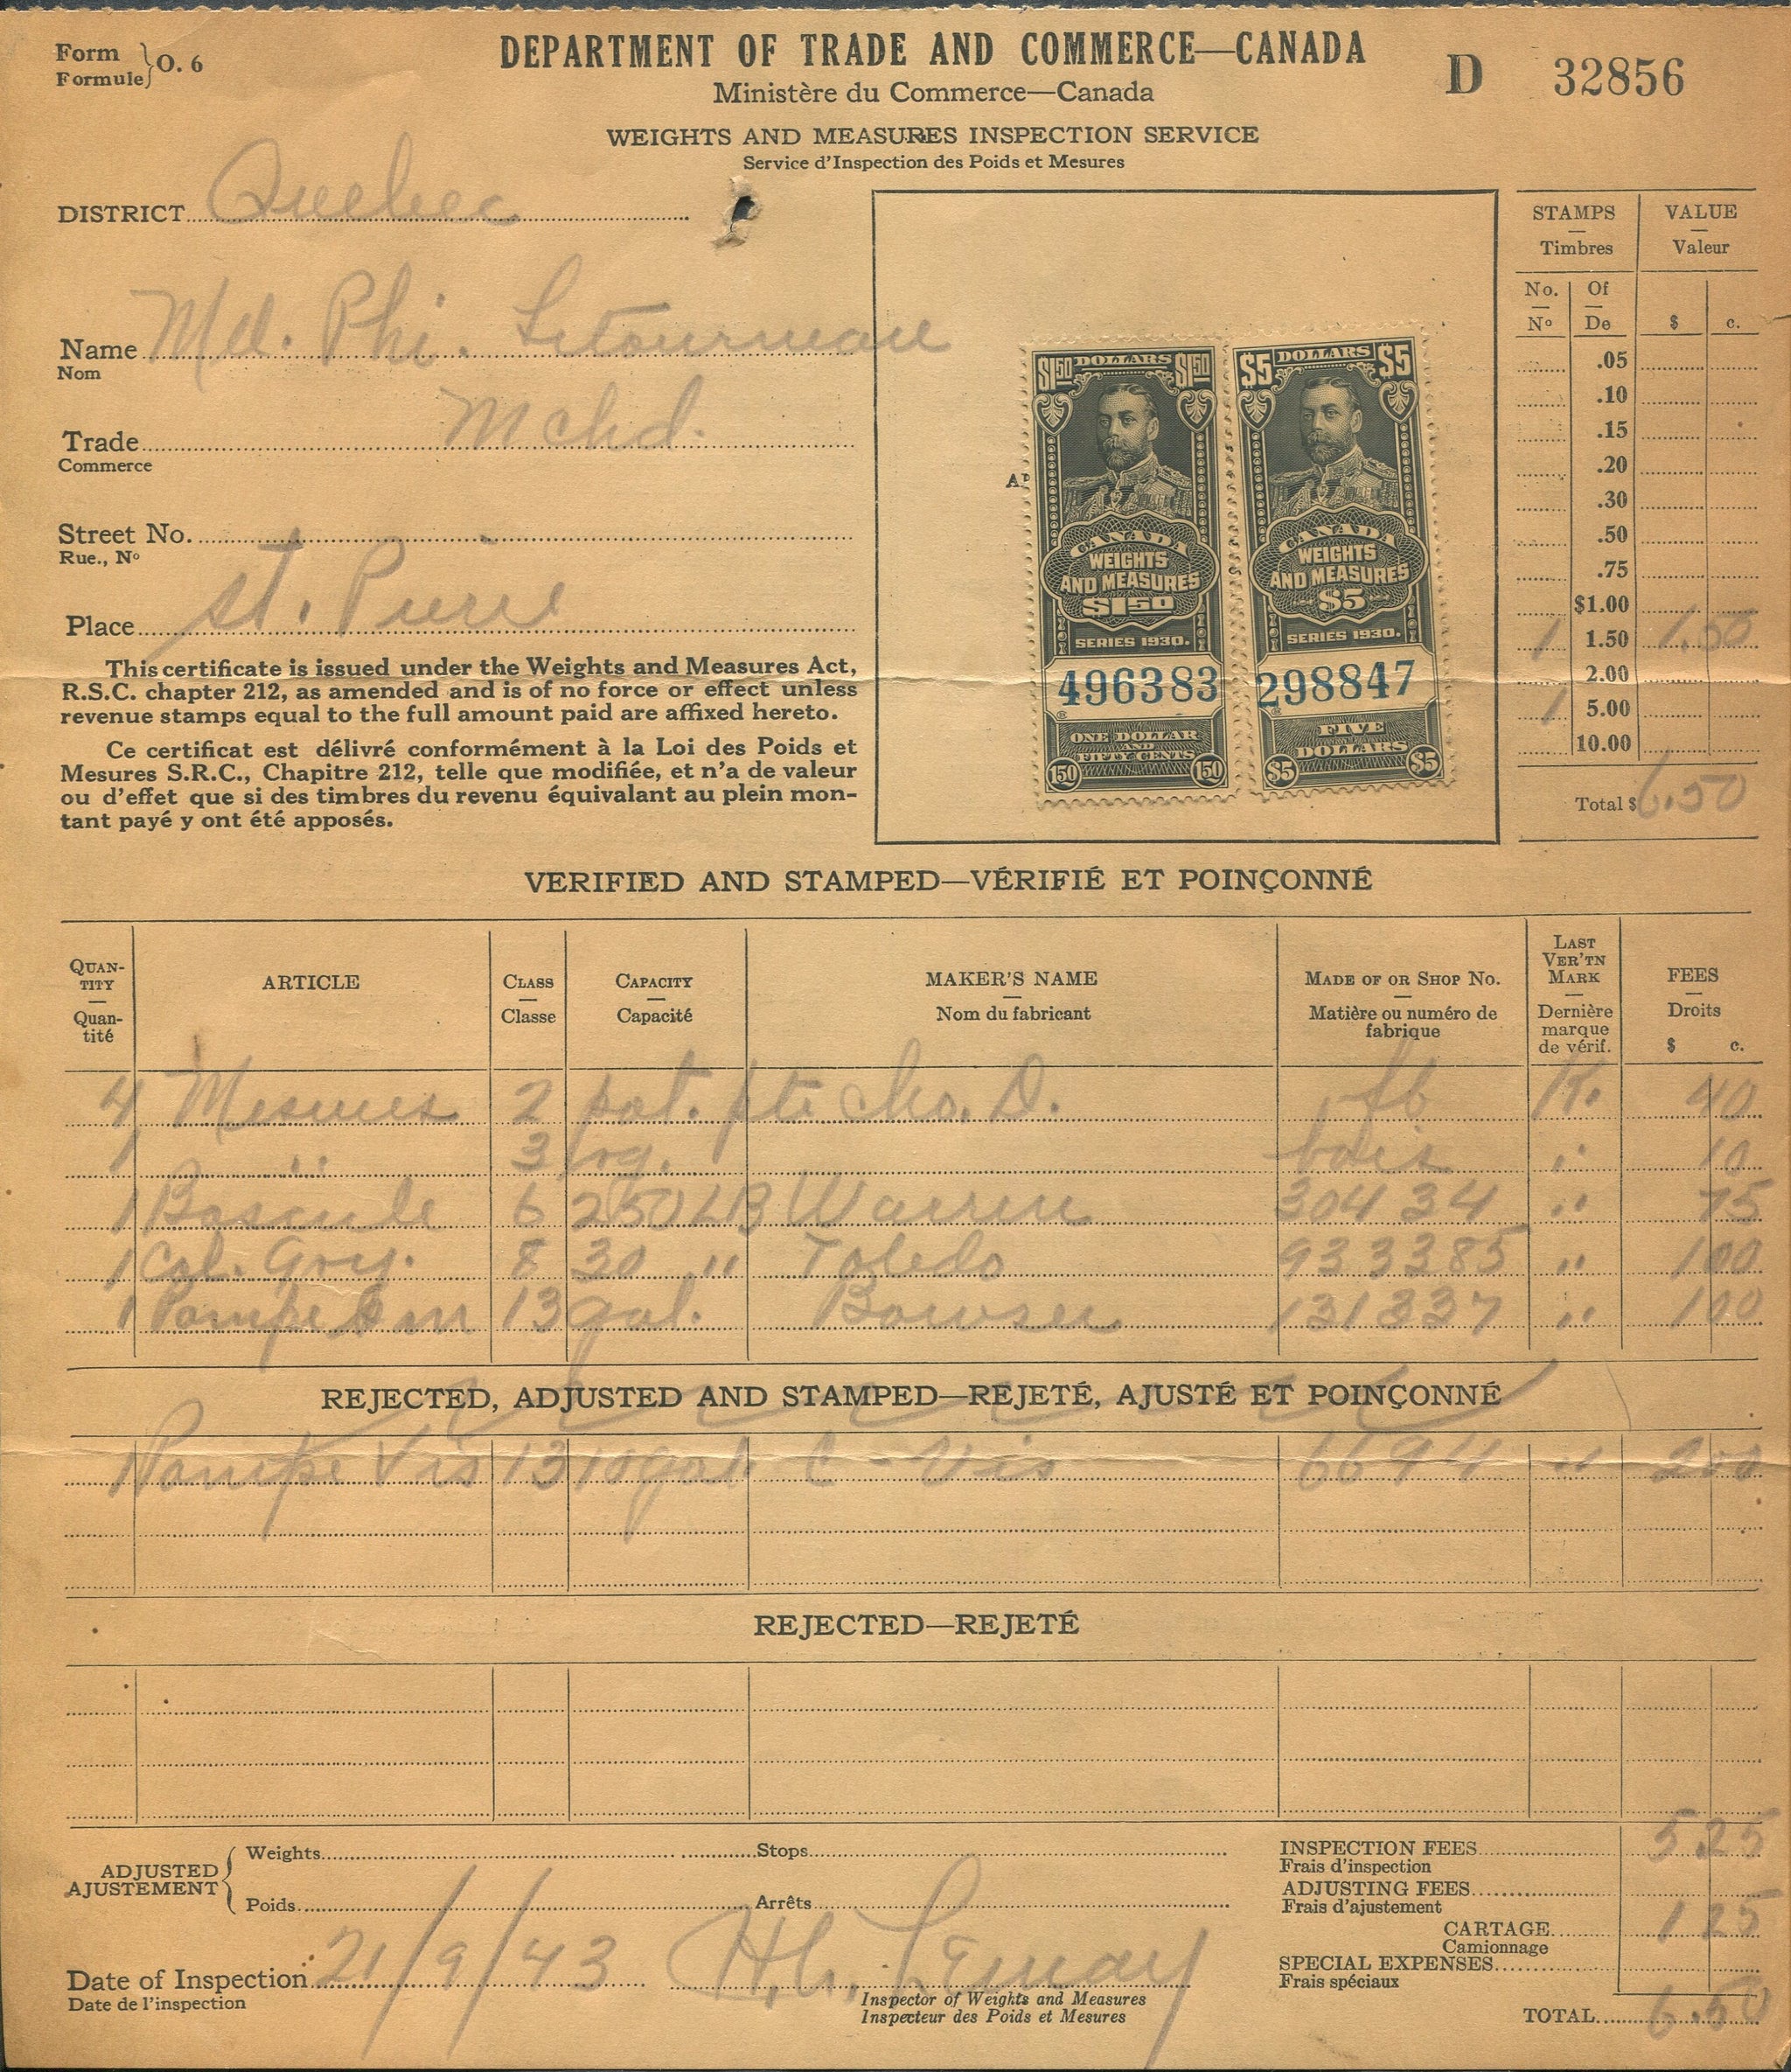 Form
Formule } O. 6
DEPARTMENT OF TRADE AND COMMERCE—CANADA
Ministère du Commerce—Canada
D 32856
WEIGHTS AND MEASURES INSPECTION SERVICE
Service d'Inspection des Poids et Mesures
DISTRICT Quebec
Name Md. Phi. Letourneau
Nom
Trade Mchd.
Commerce
Street No.
Rue., Nº
Place St. Pierre
This certificate is issued under the Weights and Measures Act,
R.S.C. chapter 212, as amended and is of no force or effect unless
revenue stamps equal to the full amount paid are affixed hereto.
Ce certificat est délivré conformément à la Loi des Poids et
Mesures S.R.C., Chapitre 212, telle que modifiée, et n'a de valeur
ou d'effet que si des timbres du revenu équivalant au plein mon-
tant payé y ont été apposés.
$1.50 DOLLARS $1.50
CANADA
WEIGHTS
AND MEASURES
$1.50
SERIES 1930.
496383
ONE DOLLAR
AND
FIFTY CENTS
150 150
$5 DOLLARS $5
CANADA
WEIGHTS
AND MEASURES
$5
SERIES 1930.
298847
FIVE
DOLLARS
$5 $5
STAMPS VALUE
Timbres Valeur
No. Of
Nº De $ c.
.05
.10
.15
.20
.30
.50
.75
$1.00
1 1.50 1.50
2.00
1 5.00
10.00
Total $ 6.50
VERIFIED AND STAMPED—VÉRIFIÉ ET POINÇONNÉ
QUAN-
TITY
Quan-
tité
ARTICLE
CLASS
Classe
CAPACITY
Capacité
MAKER'S NAME
Nom du fabricant
MADE OF OR SHOP No.
Matière ou numéro de
fabrique
LAST
VER'TN
MARK
Dernière
marque
de vérif.
FEES
Droits
$ c.
4 Mesures 2 pot. pte Cho. D. fb K. 40
1 " 3 bois " 10
1 Bascule 6 250 LB Warren 304 34 " 75
1 Cal. Groy. 8 30 " Toledo 933385 " 100
1 Pompe 13 gal. Bowser 131337 " 100
REJECTED, ADJUSTED AND STAMPED—REJETÉ, AJUSTÉ ET POINÇONNÉ
1 Pompe Vis 13 10 gal C - Vis 6694 " 200
REJECTED—REJETÉ
ADJUSTED
AJUSTEMENT
Weights Stops
Poids Arrêts
Date of Inspection 21/9/43
Date de l'inspection
H.C. Lemay
Inspector of Weights and Measures
Inspecteur des Poids et Mesures
INSPECTION FEES 5.25
Frais d'inspection
ADJUSTING FEES
Frais d'ajustement
CARTAGE 1.25
Camionnage
SPECIAL EXPENSES
Frais spéciaux
TOTAL 6.50